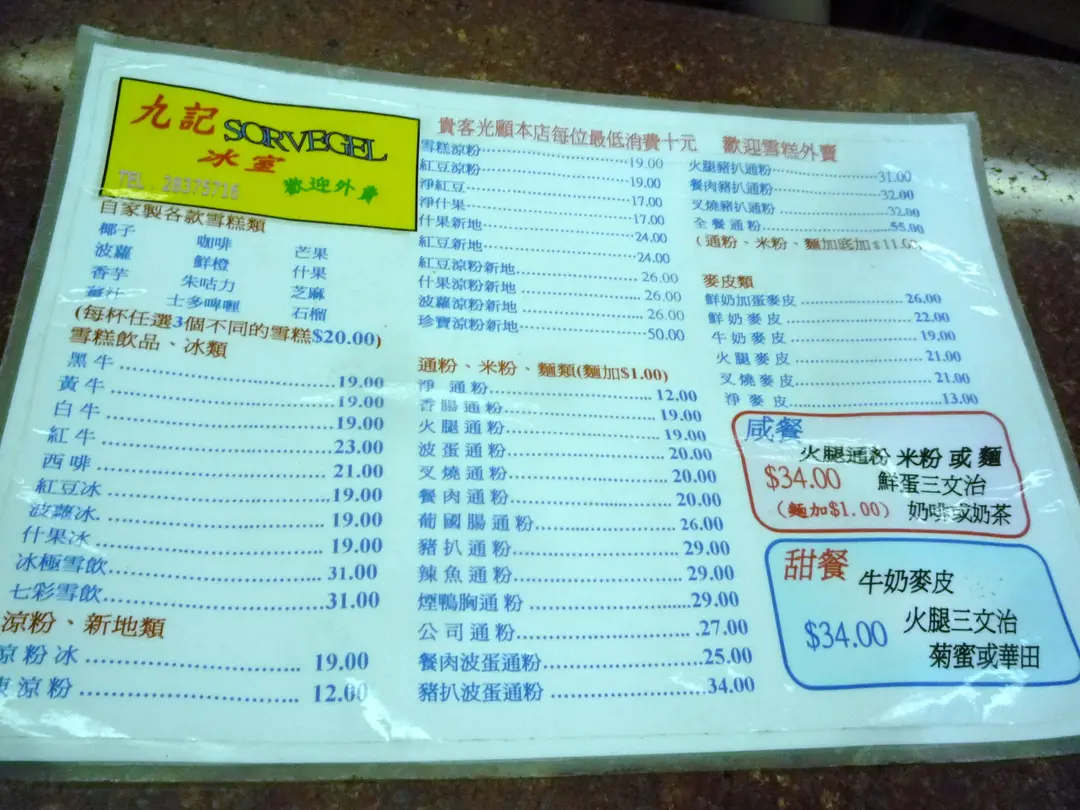 九記 SORVEGEL
冰室
TEL : 28375716 歡迎外賣
自家製各款雪糕類
椰子 咖啡 芒果
波蘿 鮮橙 什果
香芋 朱咕力 芝麻
薑汁 士多啤喱 石榴
(每杯任選3個不同的雪糕$20.00)
雪糕飲品、冰類
黑牛 19.00
黃牛 19.00
白牛 19.00
紅牛 23.00
西啡 21.00
紅豆冰 19.00
波蘿冰 19.00
什果冰 19.00
冰極雪飲 31.00
七彩雪飲 31.00
涼粉、新地類
涼粉冰 19.00
涼粉 12.00
貴客光顧本店每位最低消費十元 歡迎雪糕外賣
雪糕涼粉 19.00
紅豆涼粉 19.00
淨紅豆 17.00
淨什果 17.00
什果新地 24.00
紅豆新地 24.00
紅豆涼粉新地 26.00
什果涼粉新地 26.00
波蘿涼粉新地 26.00
珍寶涼粉新地 50.00
通粉、米粉、麵類(麵加$1.00)
淨通粉 12.00
香腸通粉 19.00
火腿通粉 19.00
波蛋通粉 20.00
叉燒通粉 20.00
餐肉通粉 20.00
葡國腸通粉 26.00
豬扒通粉 29.00
辣魚通粉 29.00
煙鴨胸通粉 29.00
公司通粉 27.00
餐肉波蛋通粉 25.00
豬扒波蛋通粉 34.00
火腿豬扒通粉 31.00
餐肉豬扒通粉 32.00
叉燒豬扒通粉 32.00
全餐通粉 55.00
(通粉、米粉、麵加底加$11.00)
麥皮類
鮮奶加蛋麥皮 26.00
鮮奶麥皮 22.00
牛奶麥皮 19.00
火腿麥皮 21.00
叉燒麥皮 21.00
淨麥皮 13.00
咸餐
火腿通粉 米粉 或 麵
$34.00 鮮蛋三文治
(麵加$1.00) 奶啡或奶茶
甜餐
牛奶麥皮
$34.00 火腿三文治
菊蜜或華田